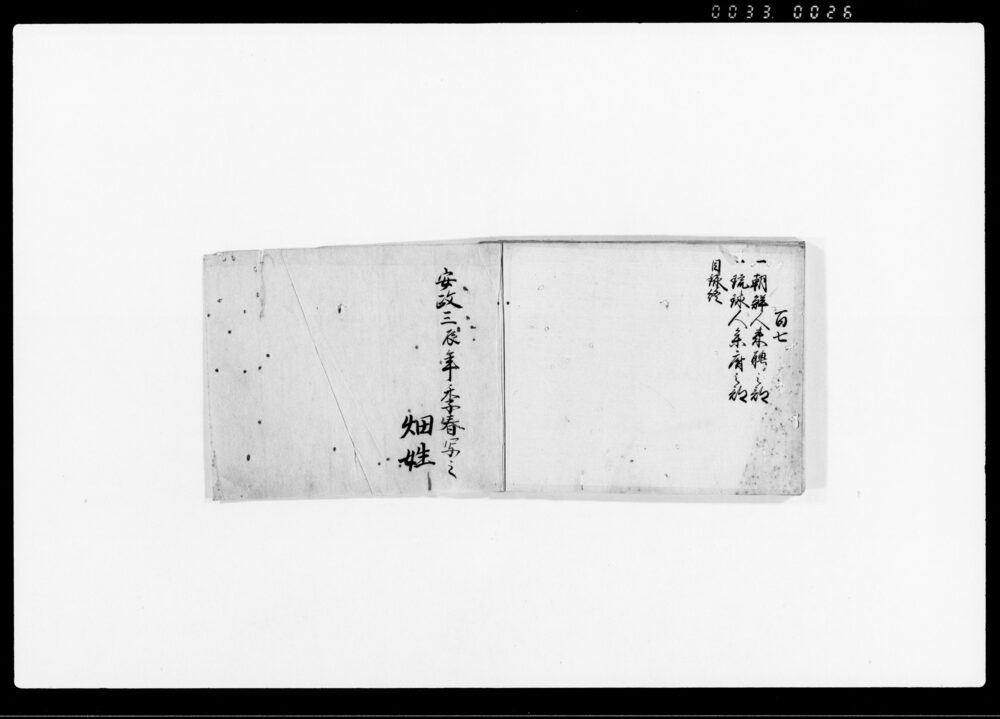 0033 0026
百七
一朝鮮人来聘之部
〻琉球人来府之部
目録終
安政三辰年季春写之
畑姓